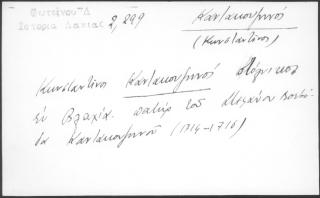 Φωτεινου-Δ
Ιστορια Δακιας 2, 299
Καντακουζηνός
(Κωνσταντίνος)
Κωνσταντίνος Καντακουζηνός Στόλνικος
εν Βλαχία. πατήρ του Στεφάνου Βοεβό-
δα Καντακουζηνού (1714-1716)